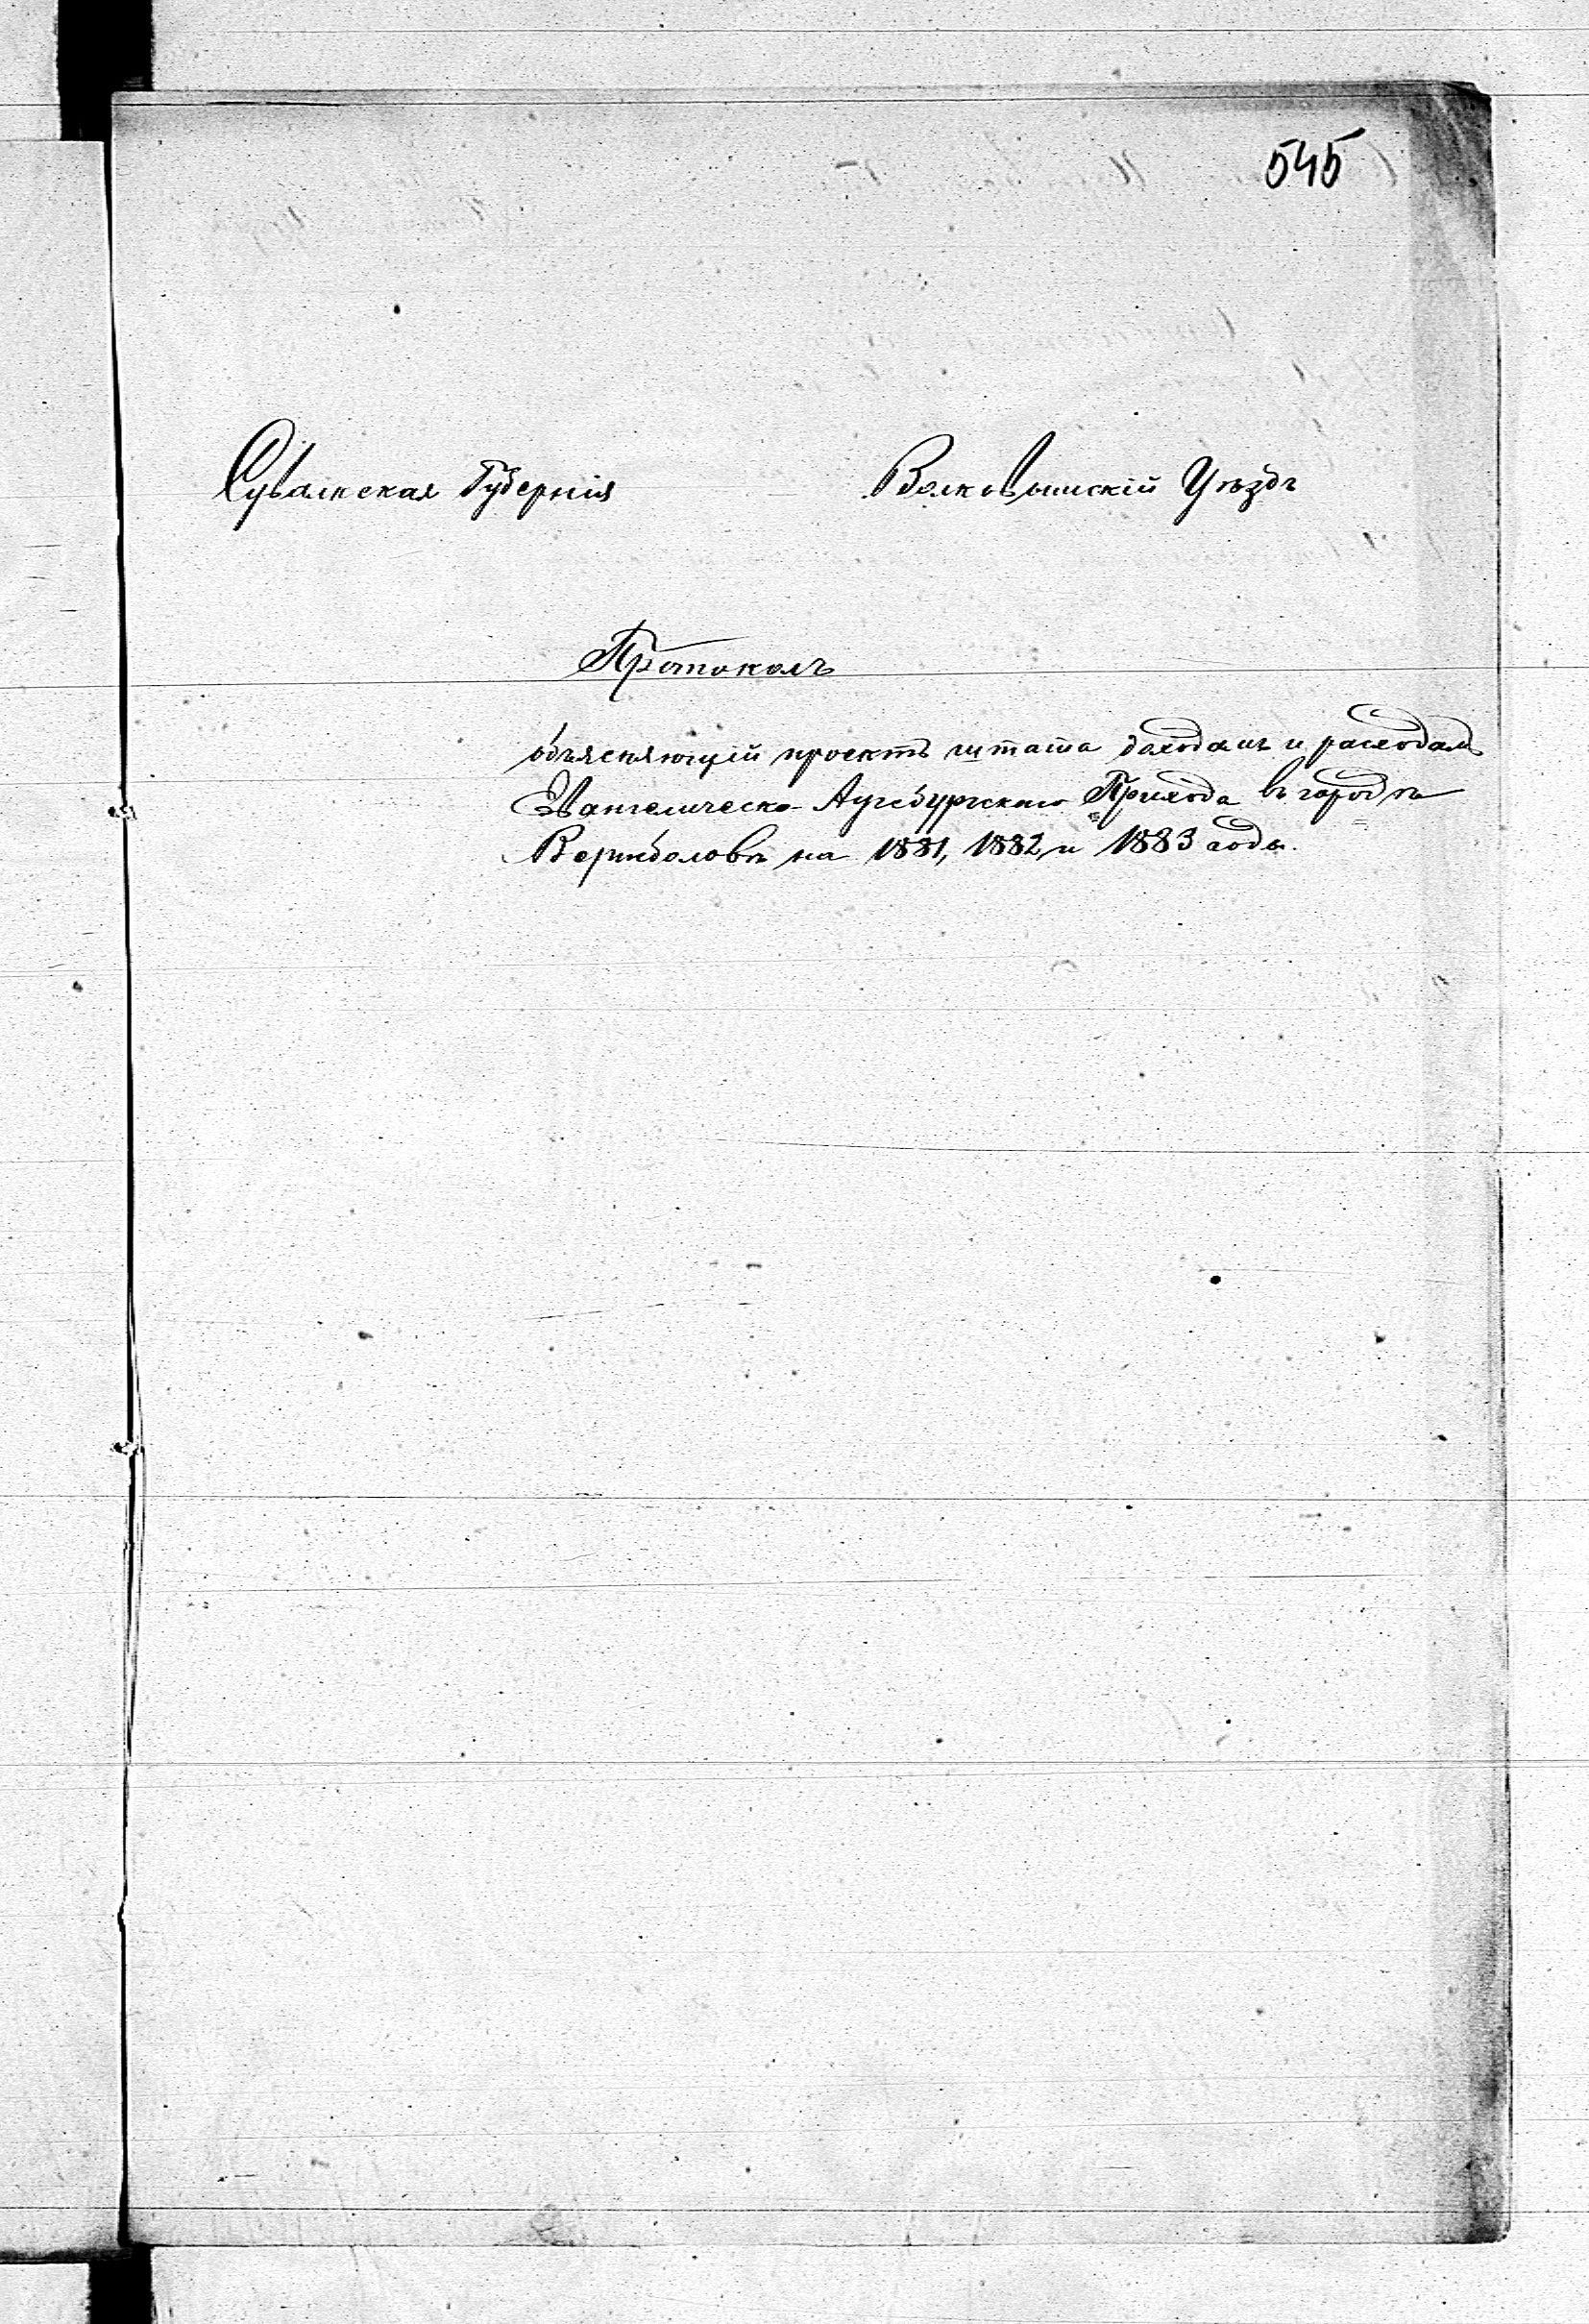 545
Сувалкская Губернія Волковышскій Уѣздъ
Протоколъ
объясняющій проектъ штата доходамъ и расходамъ
Эвангелическо-Аугсбургскаго Прихода въ городѣ
Вержболовѣ на 1881, 1882 и 1883 года.